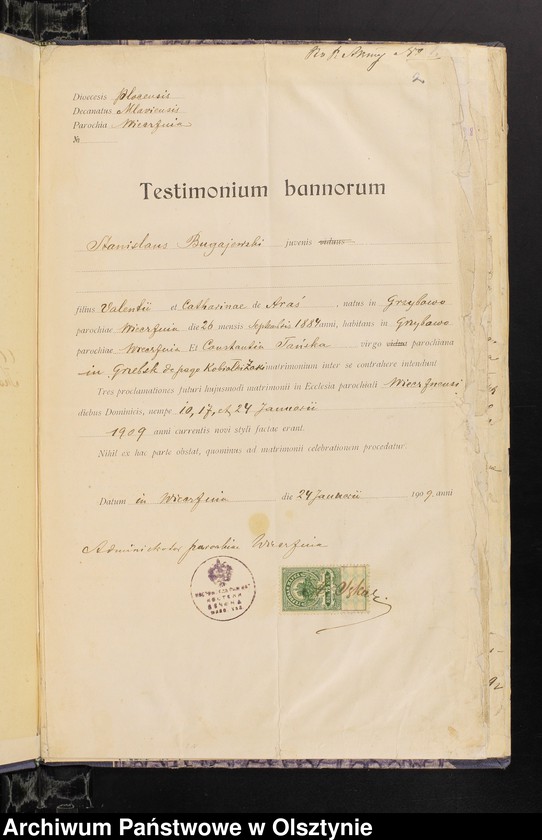 Diœcesis Plocensis
Decanatus Mlaviensis
Parochia Wieczfnia
№
Testimonium bannorum
Stanislaus Bugajewski juvenis viduus
filius Valentii et Catharinae de Araś, natus in Grzybowo
parochiae Wieczfnia die 26 mensis 1884 anni, habitans in Grzybowo
parochiae Wieczfnia Et Constantia Tańska virgo vidua parochiana
in Grebsk de pago matrimonium inter se contrahere intendunt
Tres proclamationes futuri hujusmodi matrimonii in Ecclesia parochiali
diebus Dominicis, nempe 10, 17, et 24 Januarii
1909 anni currentis novi styli factae erant.
Nihil ex hac parte obstat, quominus ad matrimonii celebrationem procedatur.
Datum in Wieczfnia die 24 Januarii 1909 anni
Administrator parochiae Wieczfnia
Archiwum Państwowe w Olsztynie